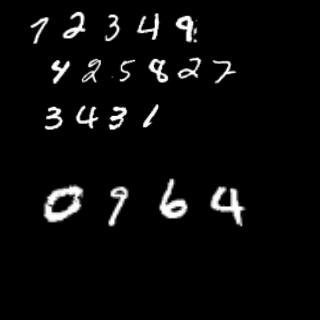 1 2 3 4 9
4 2 5 8 2 7
3 4 3 1
0 9 6 4